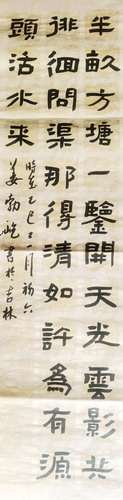 半畝方塘一鑒開天光雲影共
徘徊問渠那得清如許為有源
頭活水来
時在乙巳月初六
姜勃屹書於吉林